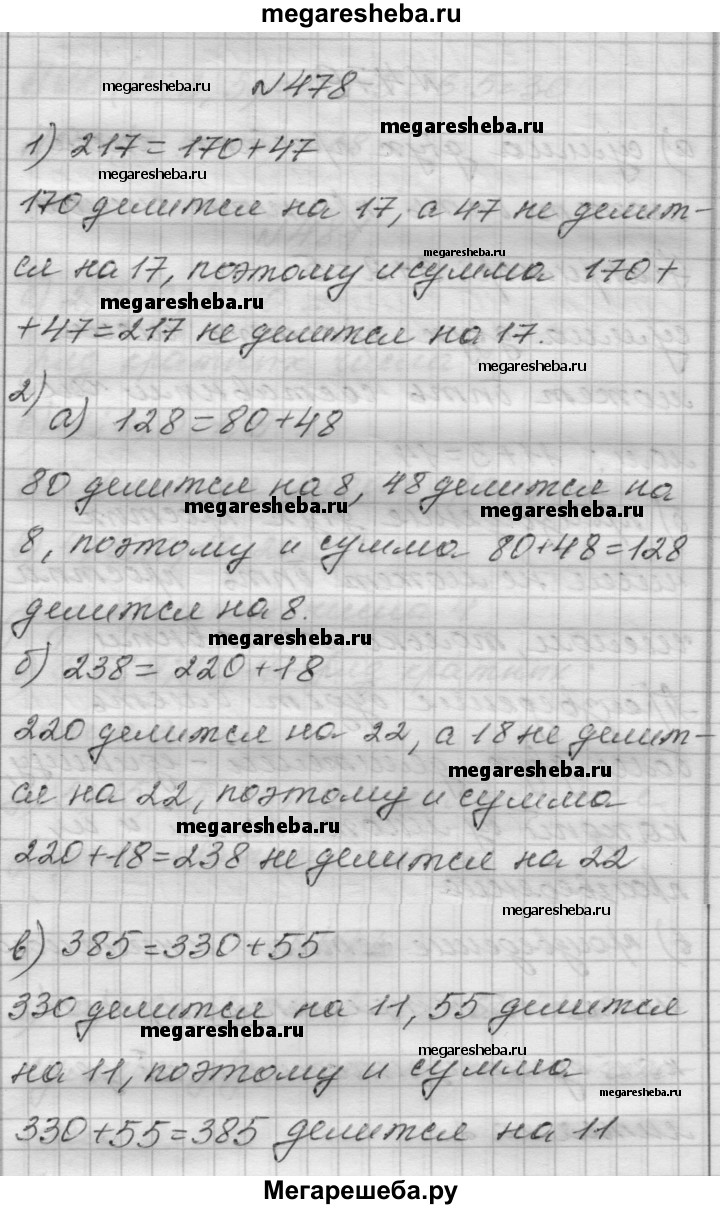 megaresheba.ru
megaresheba.ru
№478
megaresheba.ru
1) 217=170+47
megaresheba.ru
170 делится на 17, а 47 не делит-
megaresheba.ru
ся на 17, поэтому и сумма 170+
megaresheba.ru
+47=217 не делится на 17.
megaresheba.ru
2)
а) 128=80+48
80 делится на 8, 48 делится на
megaresheba.ru
megaresheba.ru
8, поэтому и сумма 80+48=128
делится на 8.
megaresheba.ru
б) 238=220+18
220 делится на 22, а 18 не делит-
megaresheba.ru
ся на 22, поэтому и сумма
megaresheba.ru
220+18=238 не делится на 22
megaresheba.ru
в) 385=330+55
330 делится на 11, 55 делится
megaresheba.ru
megaresheba.ru
на 11, поэтому и сумма
megaresheba.ru
330+55=385 делится на 11
Мегарешеба.ру